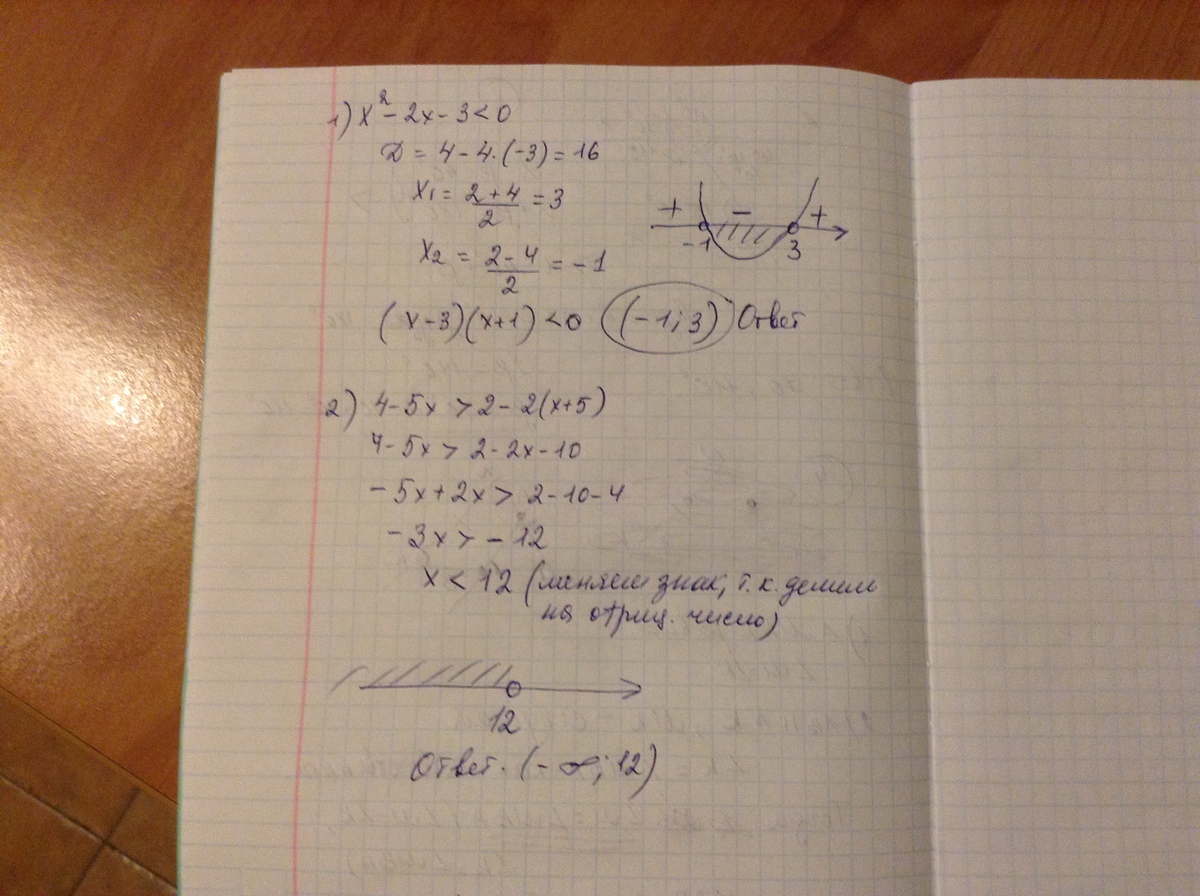 1) x² - 2x - 3 < 0
D = 4 - 4 · (-3) = 16
x₁ = 2+4/2 = 3
x₂ = 2-4/2 = -1
+ - +
-1 3
(x-3)(x+1) < 0 (-1; 3) Ответ
2) 4-5x > 2-2(x+5)
4-5x > 2-2x-10
-5x+2x > 2-10-4
-3x > -12
x < 12 (меняем знак, т.к. делим
на отриц. число)
12
Ответ. (-∞; 12)